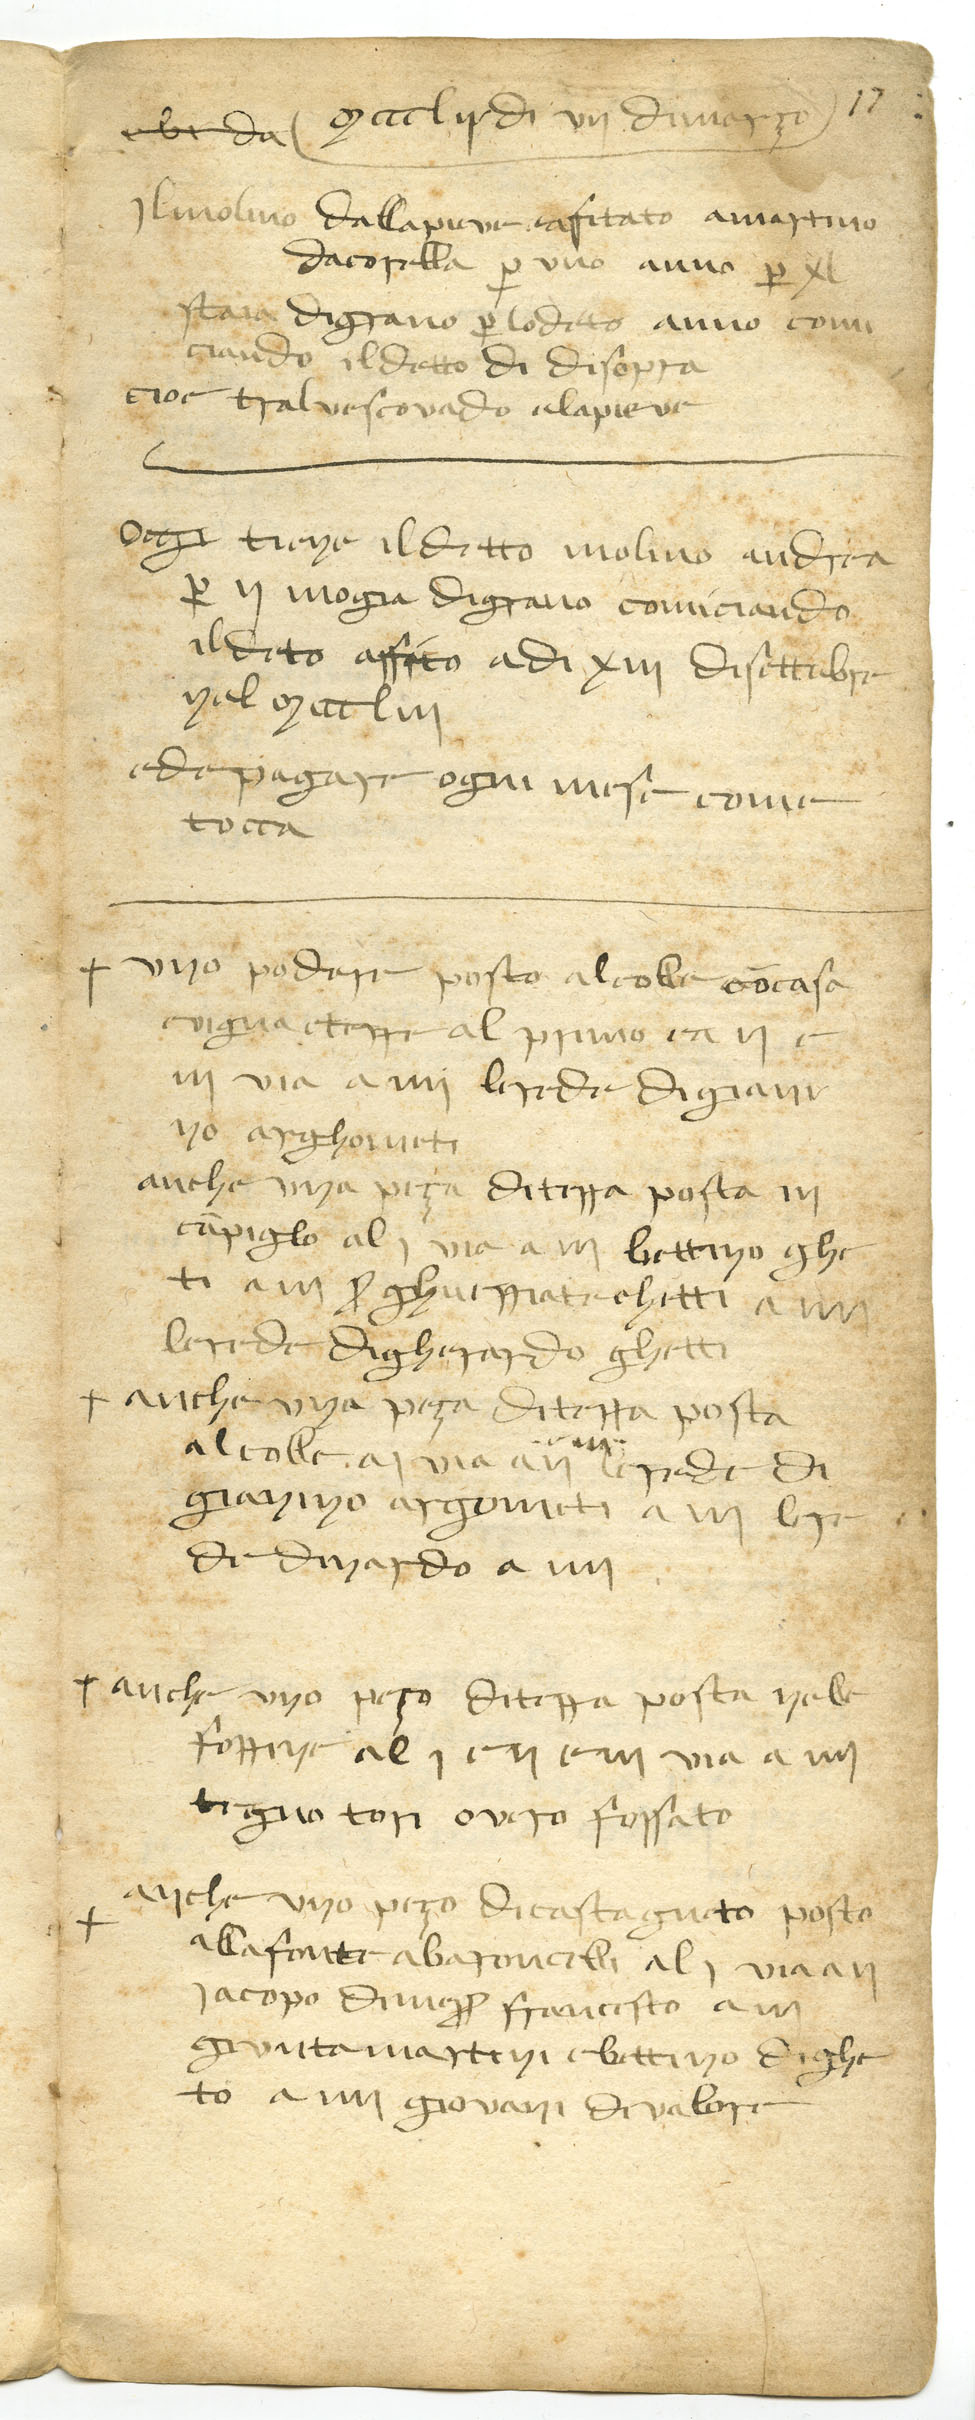 17
mccclii di vii dimarzo
Ilmolino dallapieve eafitato amartino
dacorella p uno anno p xl
staia digrano p lodeto anno comi
ciando ildetto di disopra
cioe tralvescovado elapieve
Oggi tiene ildetto molino andrea
p ii mogia digrano cominciando
ildeto affito adi xiii disettebre
nel mccclii
edepagare ogni mese come
tocca
+ uno podere posto alcolle cōcasa
evigna eterre al primo ea ii e
iii via a iiii lerede digiani
no arghometi
anche una peza diterra posta in
cāpiglo al i via a ii bettino ghe
ti a iii ghuerriate ghetti a iiii
lerede digherardo ghetti
+ anche una peza diterra posta
alcolle a i via a ii lerede di
gianino argometi a iii lere
de dinardo a iiii
+ anche uno pezo diterra posta nele
forrine al i e ii e iii via a iiii
tegno tori overo fossato
+ anche uno pezo dicastagneto posto
allafonte abaroncelli al i via a ii
iacopo dimess francesco a iii
giuntamartini ebettino dighe
to a iiii giovani divalore